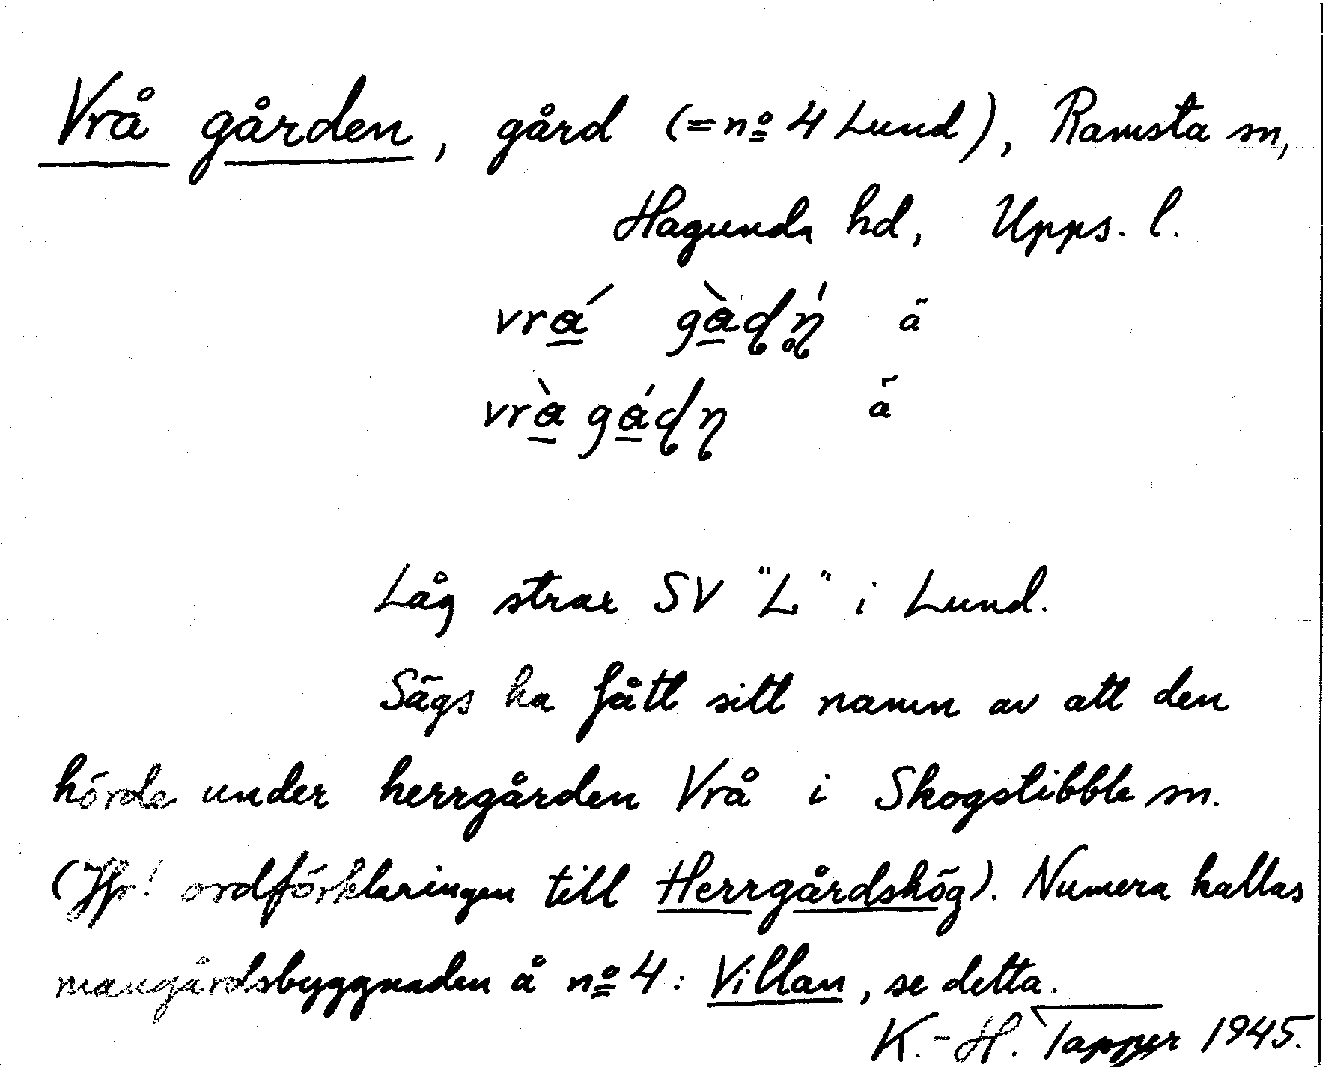 Vrå gården, gård (= nº 4 Lund), Ramsta sn,
Hagunda hd, Upps. l.
å
å
Låg strax SV "L" i Lund.
Sägs ha fått sitt namn av att den
hörde under herrgården Vrå i Skogstibble sn.
(Jfr! ordförklaringen till Herrgårdshög). Numera kallas
mangårdsbyggnaden å nº 4: Villan, se detta.
K.-H. Tapper 1945.